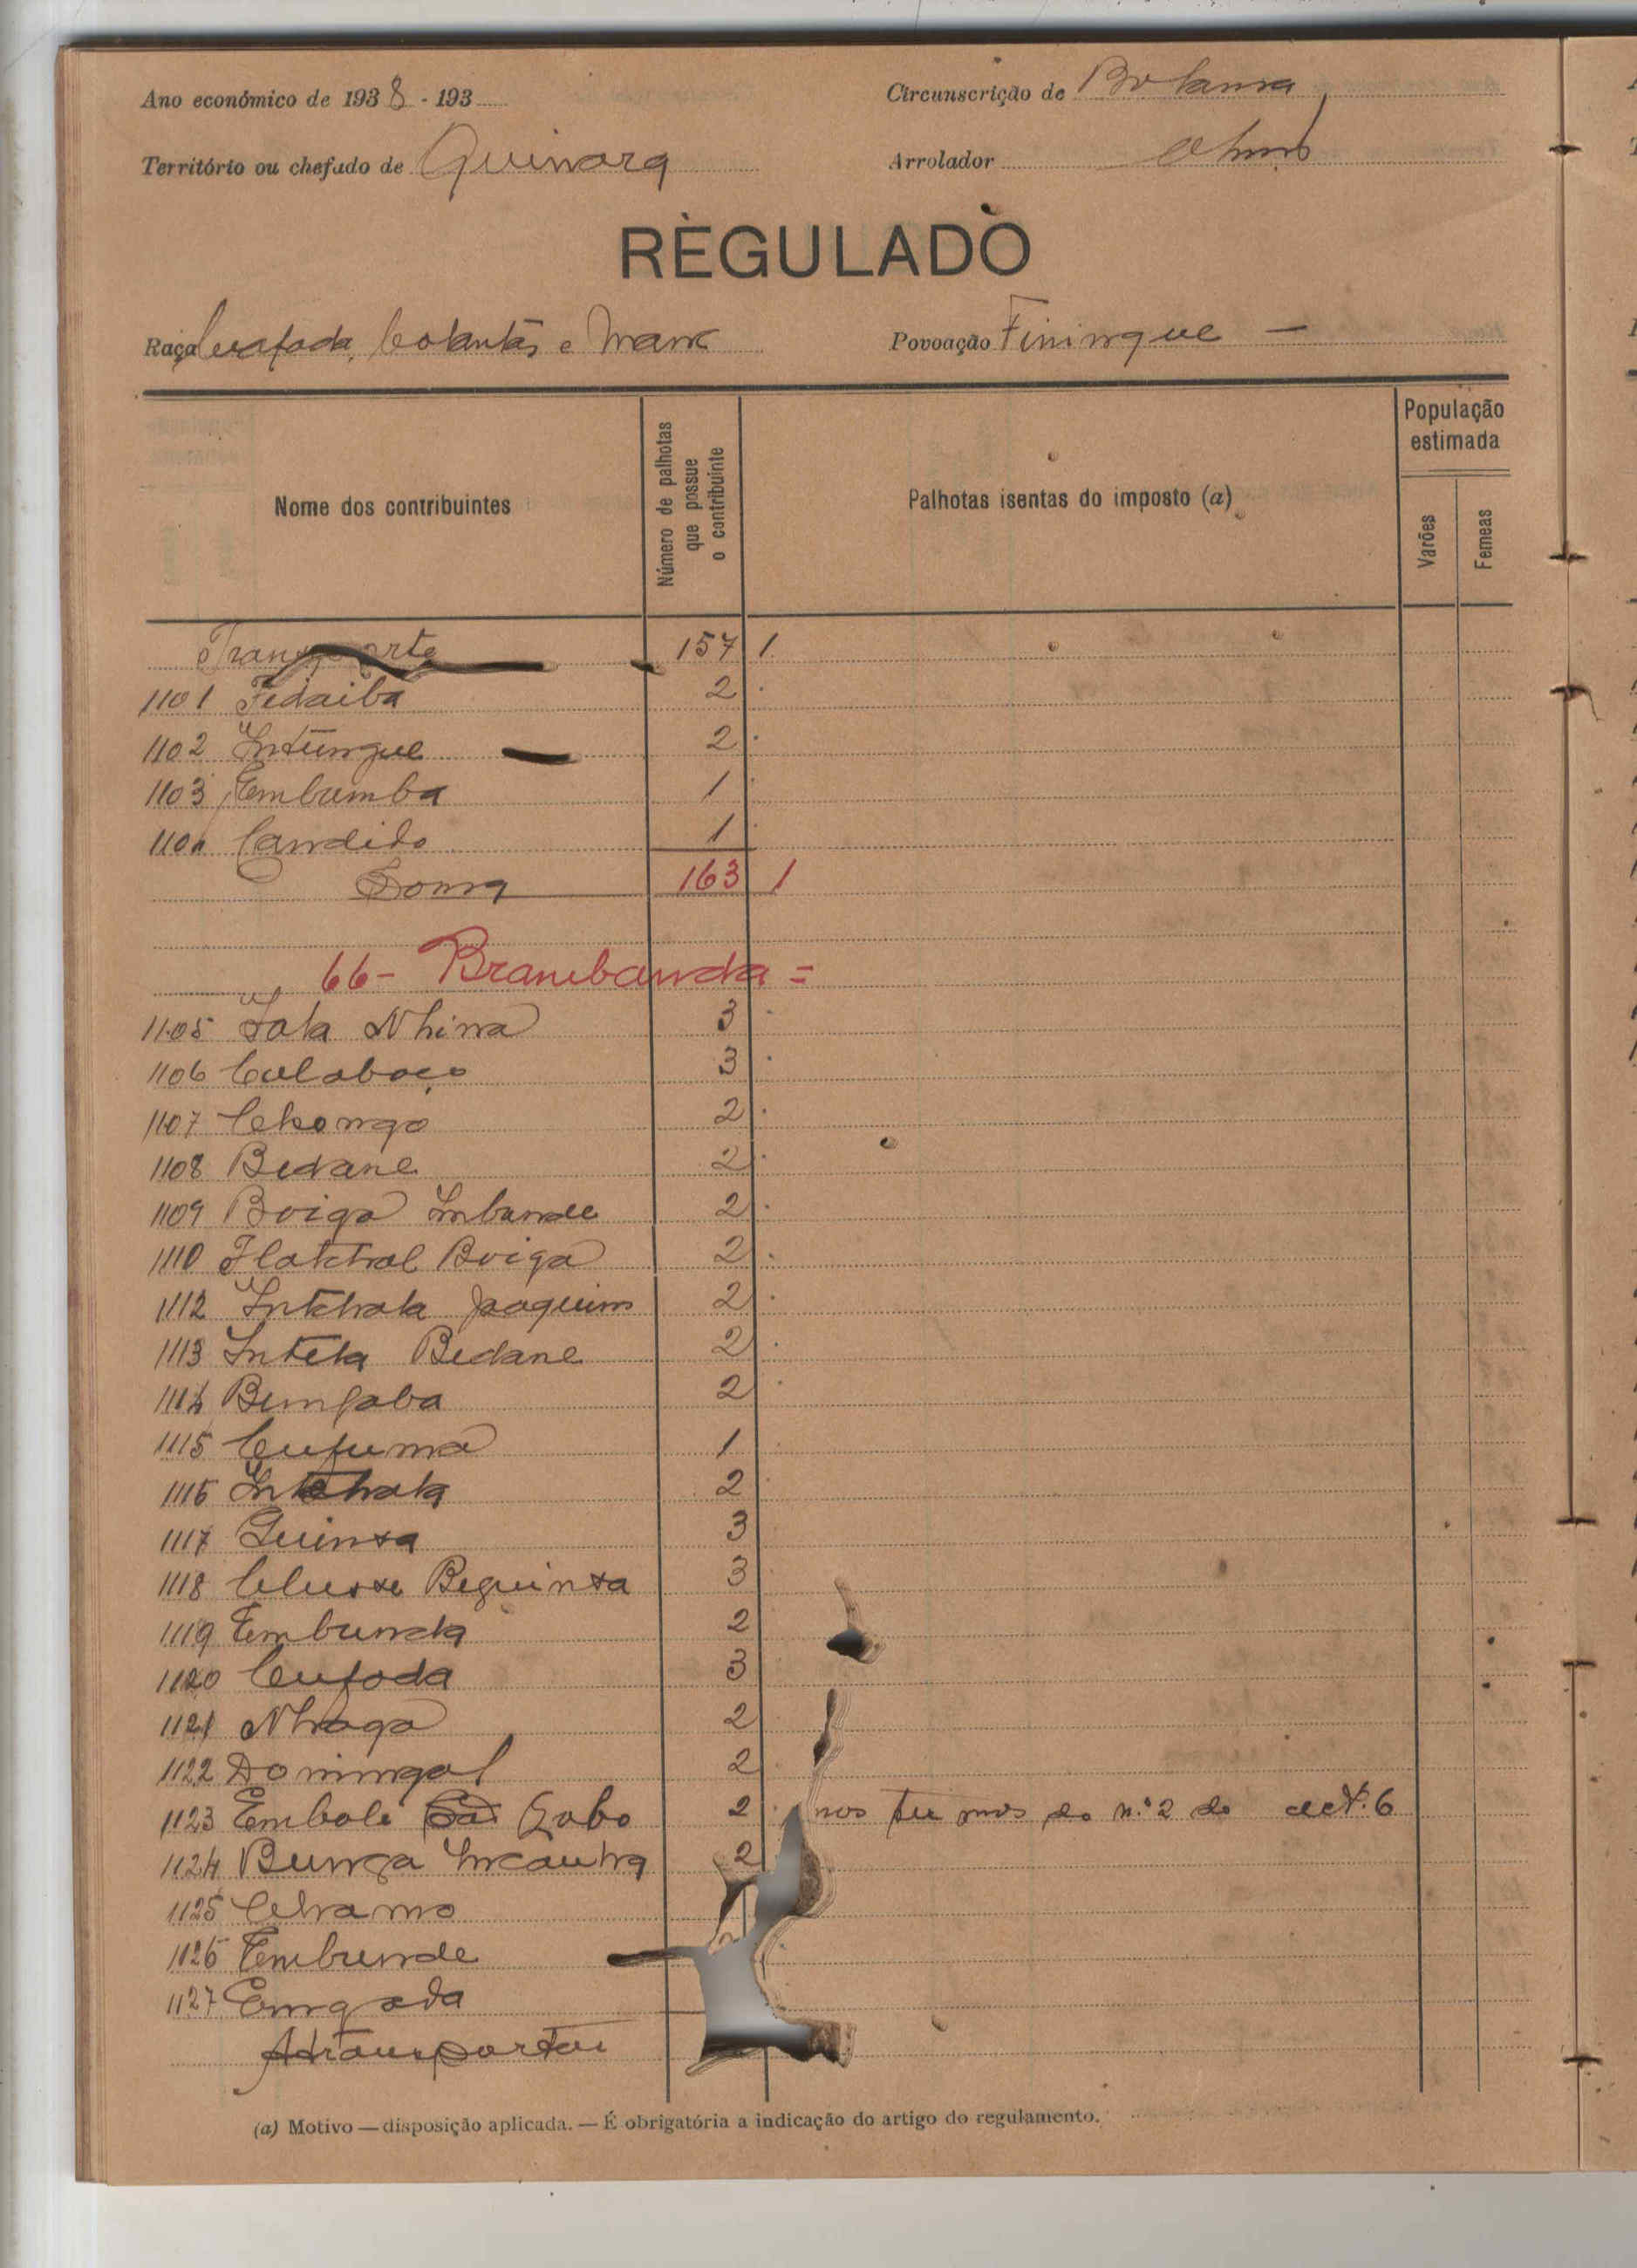 Ano económico de 1938 - 193
Circunscrição de
Território ou chefado de Quinara
Arrolador
REGULADO
Raça e
Povoação Finingue —
Nome dos contribuintes
Número de palhotas que possue o contribuinte
Palhotas isentas do imposto (a)
População estimada
Varões
Femeas
Transporte 157 1
1101 Fidaiba 2
1102 Intungue 2
1103 Embumba 1
1104 Candido 1
Soma 163 1
66 - Brambanda =
1105 Nhina 3
1106 Calaboço 3
1107 Chongo 2
1108 Bedane 2
1109 Boiga Imbunde 2
1110 Boiga 2
1112 Intchala Joaquim 2
1113 Intela Bedane 2
1114 Bungaba 2
1115 Cufuma 1
1116 Intchala 2
1117 Quinta 3
1118 Bequinta 3
1119 Embunda 2
1120 Cufoda 3
1121 Nhaga 2
1122 Domingos 2
1123 Embale 2 nos termos do n.º 2 do art.º 6
1124 Bunga 2
1125 Chamo
1126 Embunde
1127 Emgada
A transportar
(a) Motivo — disposição aplicada. — É obrigatória a indicação do artigo do regulamento.